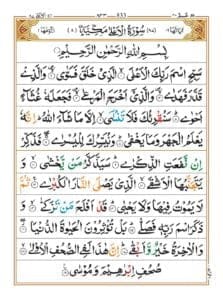 سُوْرَةُ الْاَعْلٰى مَكِّيَّةٌ
بِسْمِ اللّٰهِ الرَّحْمٰنِ الرَّحِيْمِ
سَبِّحِ اسْمَ رَبِّكَ الْاَعْلَى ۝ الَّذِيْ خَلَقَ فَسَوّٰى ۝ وَالَّذِيْ
قَدَّرَ فَهَدٰى ۝ وَالَّذِيْۤ اَخْرَجَ الْمَرْعٰى ۝ فَجَعَلَهٗ غُثَآءً
اَحْوٰى ۝ سَنُقْرِئُكَ فَلَا تَنْسٰۤى ۝ اِلَّا مَا شَآءَ اللّٰهُ ؕ اِنَّهٗ
يَعْلَمُ الْجَهْرَ وَمَا يَخْفٰى ۝ وَنُيَسِّرُكَ لِلْيُسْرٰى ۝ فَذَكِّرْ
اِنْ نَّفَعَتِ الذِّكْرٰى ۝ سَيَذَّكَّرُ مَنْ يَّخْشٰى ۝ وَ
يَتَجَنَّبُهَا الْاَشْقَى ۝ الَّذِيْ يَصْلَى النَّارَ الْكُبْرٰى ۝ ثُمَّ
لَا يَمُوْتُ فِيْهَا وَلَا يَحْيٰى ۝ قَدْ اَفْلَحَ مَنْ تَزَكّٰى ۝ وَ
ذَكَرَ اسْمَ رَبِّهٖ فَصَلّٰى ۝ بَلْ تُؤْثِرُوْنَ الْحَيٰوةَ الدُّنْيَا ۝
وَالْاٰخِرَةُ خَيْرٌ وَّاَبْقٰى ۝ اِنَّ هٰذَا لَفِي الصُّحُفِ الْاُوْلٰى ۝
صُحُفِ اِبْرٰهِيْمَ وَمُوْسٰى ۝